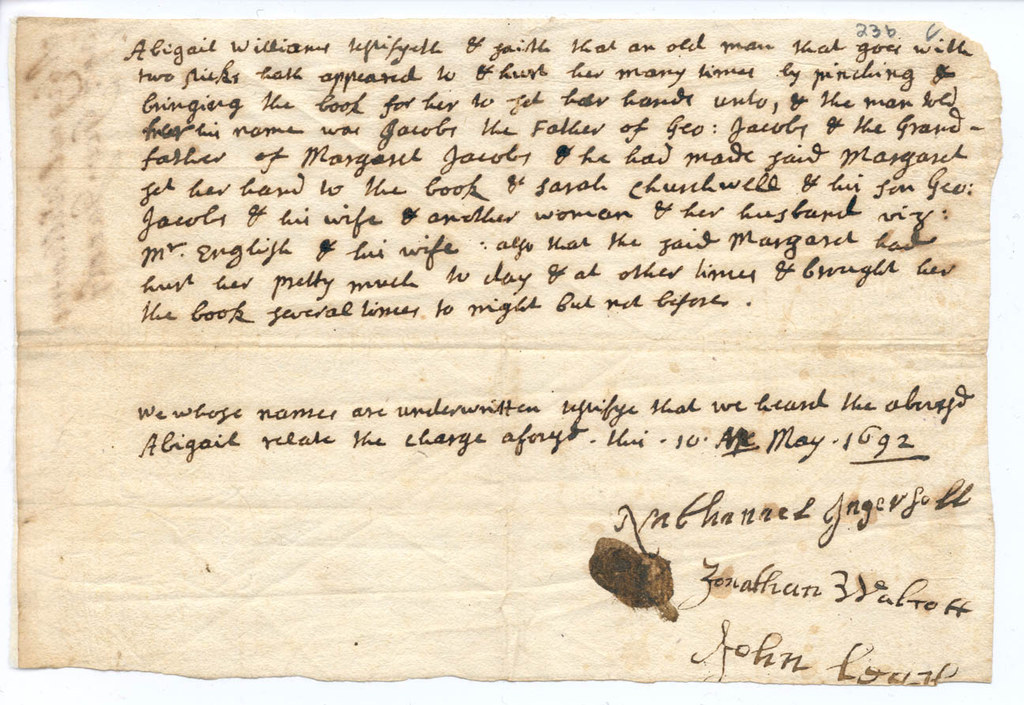 23b. 6
Abigail Williams testifyeth & saith that an old man that goes with
two sticks hath appeared to & hurt her many times by pinching &
bringing the book for her to set her hands unto, & the man told
her his name was Jacobs the Father of Geo: Jacobs & the Grand-
father of Margaret Jacobs & he had made said Margaret
set her hand to the book & Sarah Churchwell & his son Geo:
Jacobs & his wife & another woman & her husband viz:
Mr. English & his wife : also that the said Margaret had
hurt her pretty much to day & at other times & brought her
the book several times to night but not before.
we whose names are underwritten testifye that we heard the abovesd
Abigail relate the charge aforesd. this . 10. May . 1692
Nathaniel Ingersoll
Jonathan Walcott
John